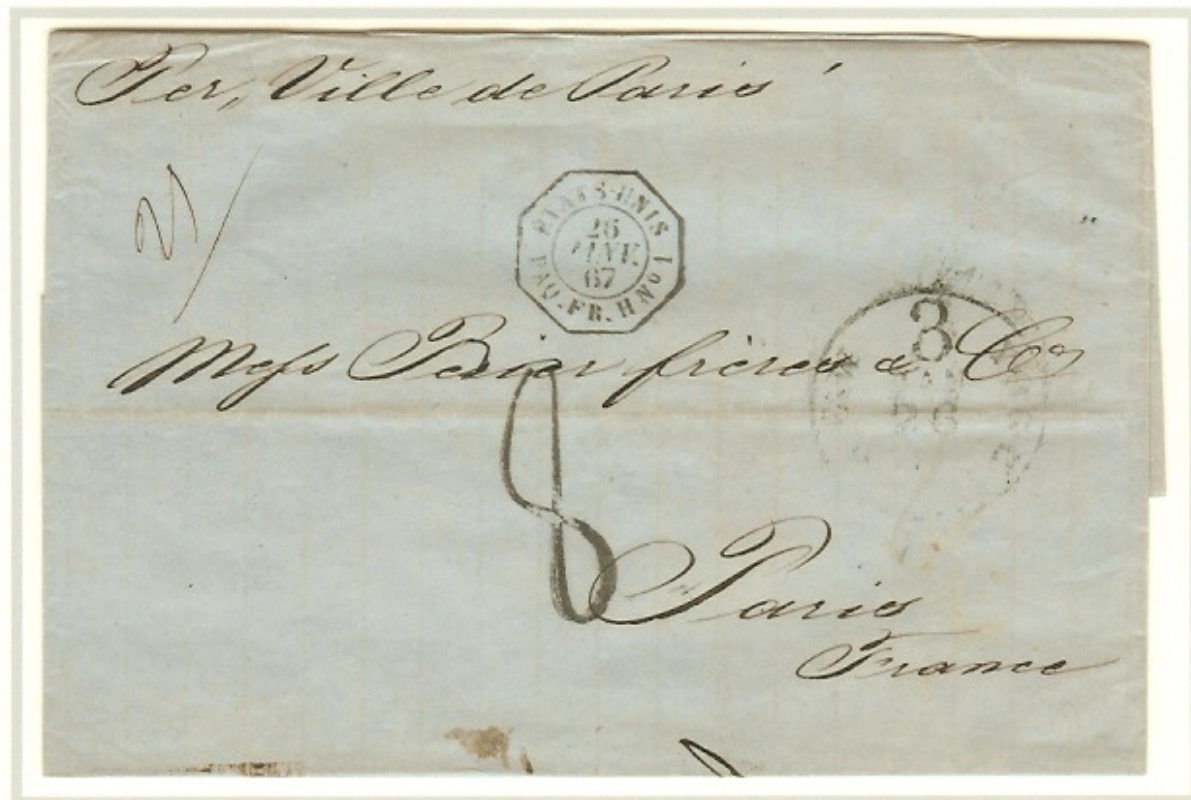 Per „Ville de Paris"
ETATS-UNIS
26
JANV.
67
PAQ. FR. H Nº 1
3
Mess Perier frères & Co
8
Paris
France